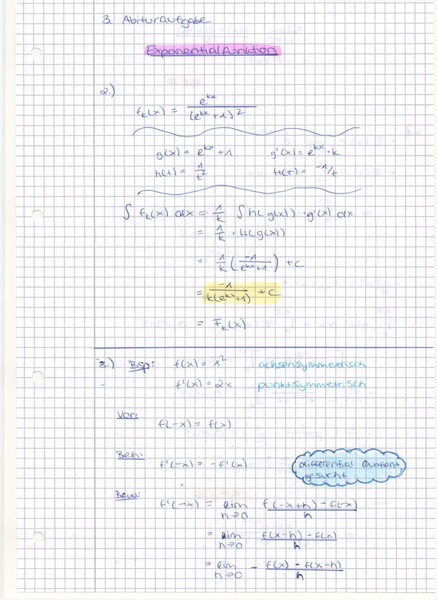 3. Abituraufgabe
Exponentialfunktion
2.) f_k(x) = e^{kx} / (e^{kx} + 1)^2
g(x) = e^{kx} + 1    g'(x) = e^{kx} · k
h(t) = 1/t^2    H(t) = -1/t
∫ f_k(x) dx = 1/k ∫ h(g(x)) · g'(x) dx
= 1/k · H(g(x))
= 1/k (-1/(e^{kx}+1)) + C
= -1/(k(e^{kx}+1)) + C
= F_k(x)
3.) Bsp: f(x) = x^2    achsensymmetrisch
f'(x) = 2x    punktsymmetrisch
Vor: f(-x) = f(x)
Beh: f'(-x) = -f'(x)
differential Quotient
gesucht
Bew: f'(-x) = lim h→0 (f(-x+h) - f(-x))/h
= lim h→0 (f(x-h) - f(x))/h
= lim h→0 - (f(x) - f(x-h))/h